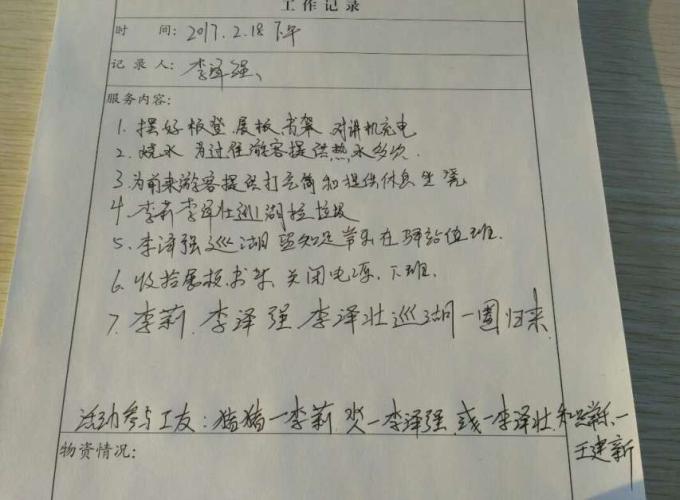 工作记录
时 间：2017.2.18下午
记录人：李泽强、
服务内容：
1. 摆好板登、展板、书架 对讲机充电
2. 烧水 为过往游客提供热水多次.
3. 为前来游客提供打气筒和提供休息坐凳
4. 李莉李泽壮巡湖捡垃圾
5. 李泽强巡湖 知足常乐在驿站值班.
6. 收拾展板、书架、关闭电源、下班.
7. 李莉、李泽强、李泽壮巡湖一圈归来
活动参与工友：猪猪—李莉、—李泽强、—李泽壮、知足常乐—
王建新
物资情况：